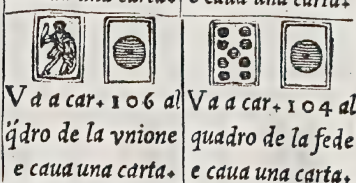 una carta.
e caua una carta.
Va a car. 106 al
q̈dro de la vnione
e caua una carta.
Va a car. 104 al
quadro de la fede
e caua una carta.